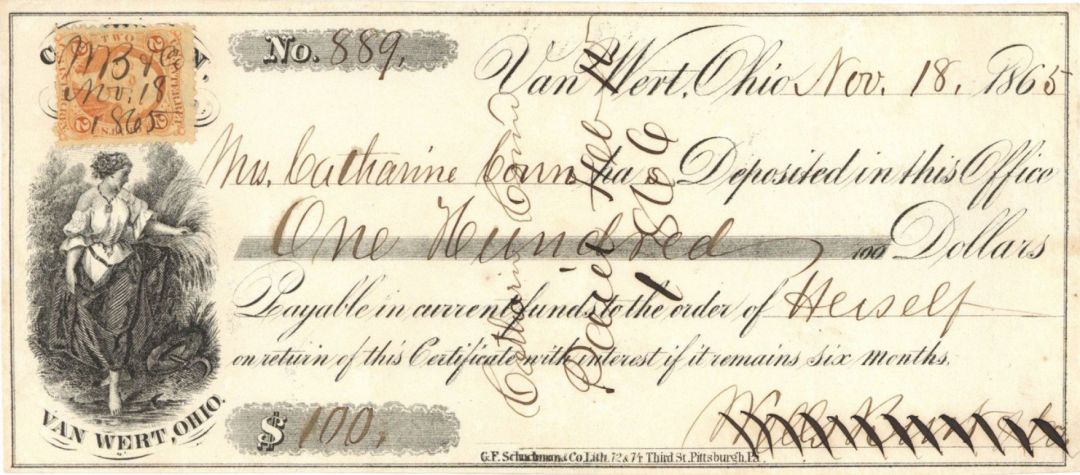 No. 889,
Van Wert, Ohio Nov. 18. 1865
TWO
2 2
WB & Co
Nov. 18
1865
Mrs. Catharine Conn has Deposited in this Office
One Hundred 100 Dollars
Payable in current funds to the order of Herself
on return of this Certificate with interest if it remains six months.
VAN WERT, OHIO.
$ 100,
G.F. Schuchman & Co. Lith. 72 & 74 Third St. Pittsburgh, Pa
Catharine Conn
Paid Feb
1866